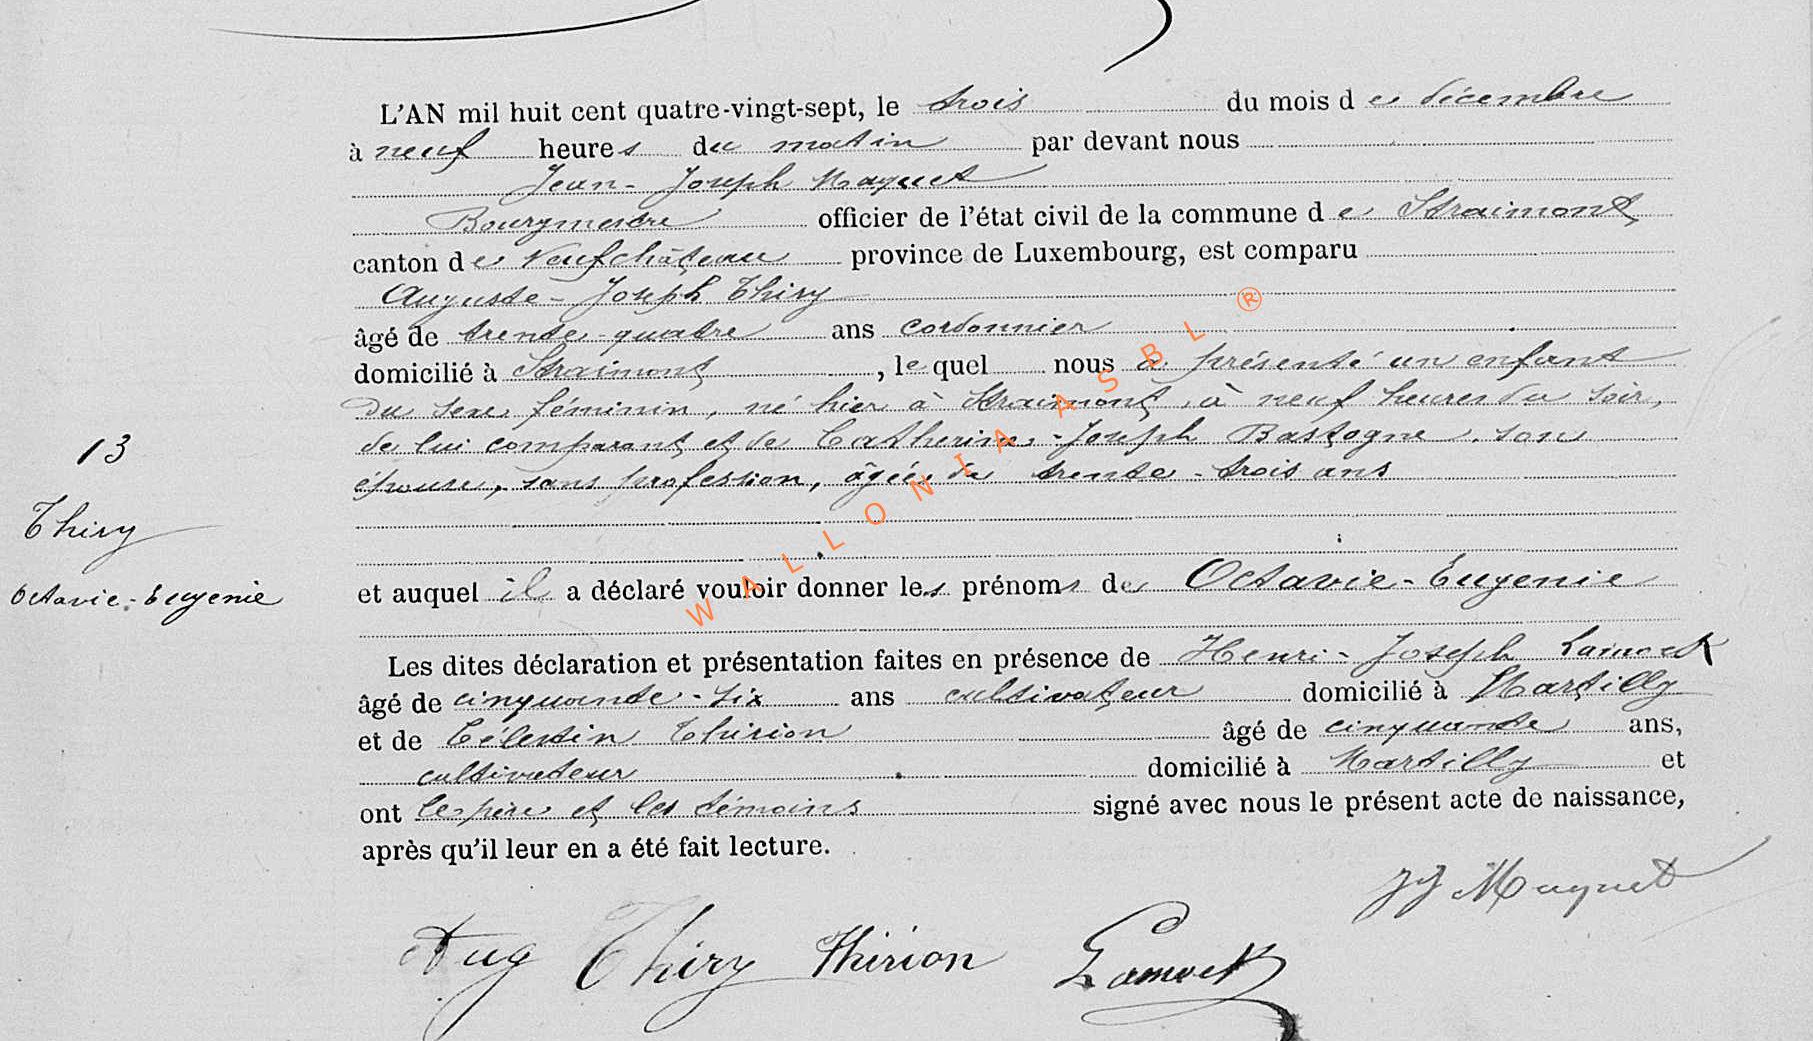 L'AN mil huit cent quatre-vingt-sept, le trois du mois de décembre
à neuf heures du matin par devant nous
Jean-Joseph Maquet
Bourgmestre officier de l'état civil de la commune de Straimont
canton de Neufchâteau province de Luxembourg, est comparu
Auguste-Joseph Thiry
âgé de trente-quatre ans cordonnier
domicilié à Straimont, lequel nous a présenté un enfant
du sexe féminin, né hier à Straimont, à neuf heures du soir,
de lui comparant et de Catherine-Joseph Bastogne, son
épouse, sans profession, âgée de trente-trois ans
13
Thiry
Octavie-Eugenie
et auquel il a déclaré vouloir donner les prénoms de Octavie-Eugenie
Les dites déclaration et présentation faites en présence de Henri-Joseph
âgé de cinquante-six ans cultivateur domicilié à Martilly
et de Célestin Thirion âgé de cinquante ans,
cultivateur domicilié à Martilly et
ont le père et les témoins signé avec nous le présent acte de naissance,
après qu'il leur en a été fait lecture.
JJ Maquet
Aug Thiry Thirion
WALLONIA ASBL ®